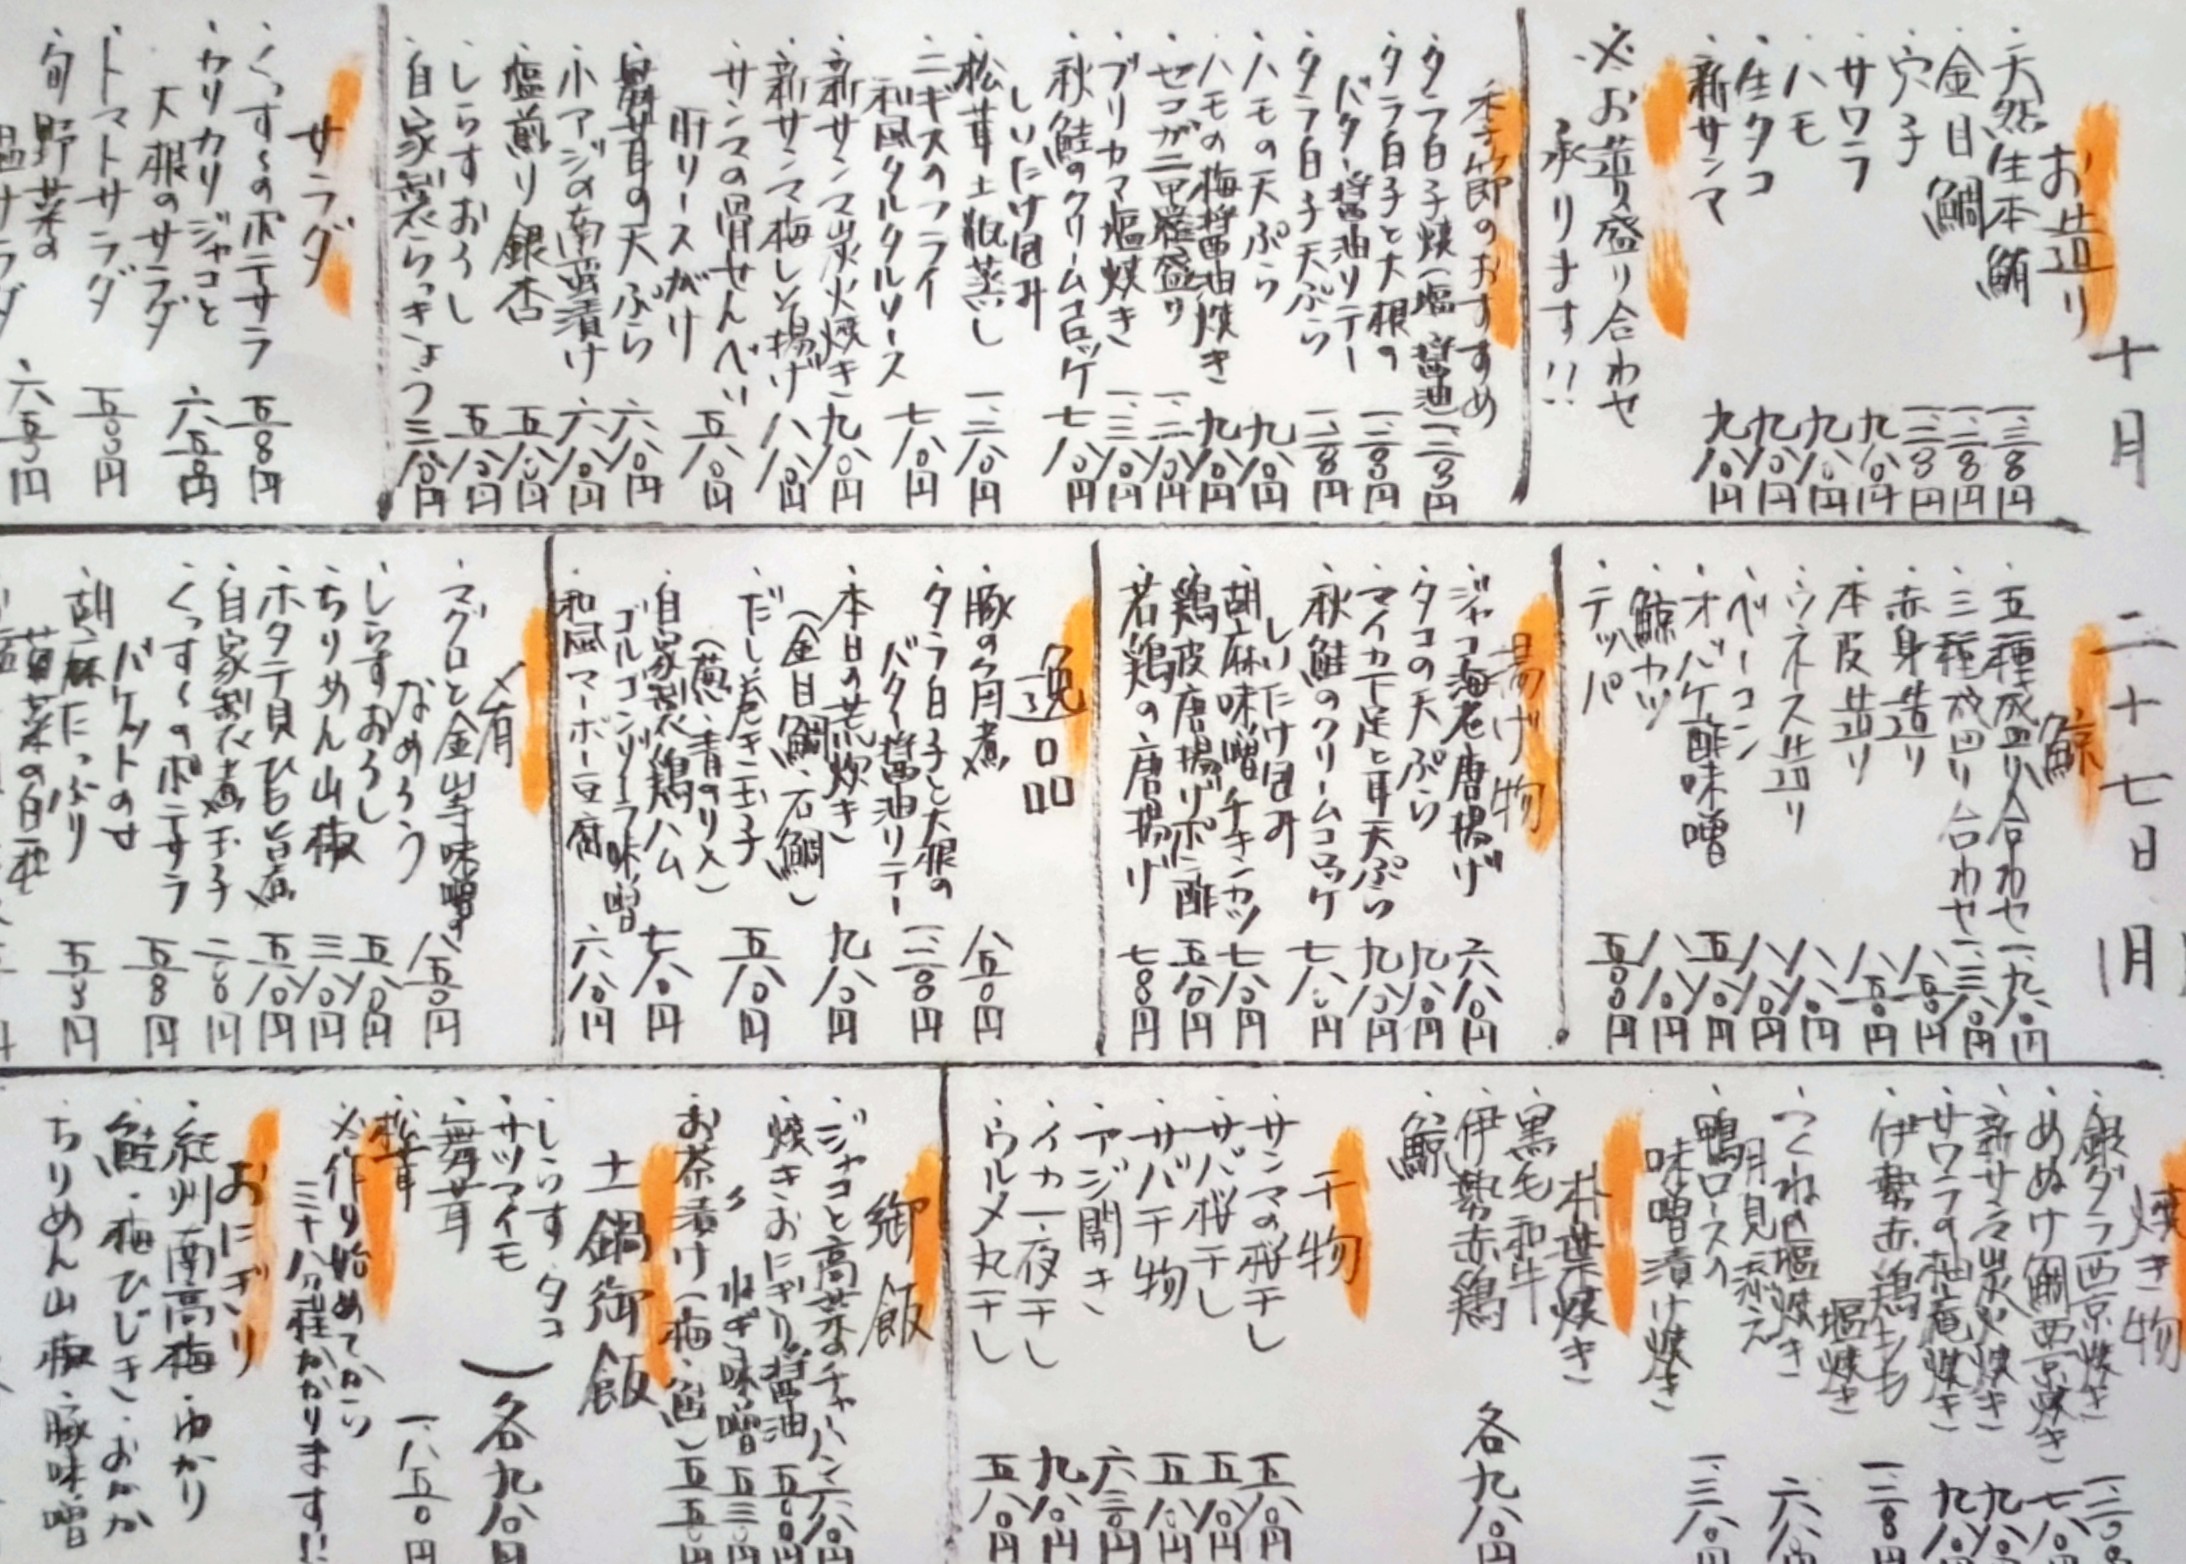 十月 二十七日 月
お造り
・天然生本鮪 一、三〇〇円
・金目鯛 一、二〇〇円
・穴子 一、二〇〇円
・サワラ 九八〇円
・ハモ 九八〇円
・生タコ 九八〇円
・新サンマ 九八〇円
※お造り盛り合わせ
承ります!!
季節のおすすめ
・タラ白子焼(塩、醤油)一、二〇〇円
・タラ白子と大根の
バター醤油ソテー 一、三〇〇円
・タラ白子天ぷら 一、二〇〇円
・ハモの天ぷら 九八〇円
・ハモの梅醤油焼き 九八〇円
・セコガニ甲羅盛り
・ブリカマ塩焼き
・秋鮭のクリームコロッケ
しいたけ包み 七八〇円
・松茸土瓶蒸し 一、三八〇円
・ニギスのフライ
和風タルタルソース 七八〇円
・新サンマ炭火焼き 九八〇円
・新サンマ梅しそ揚げ 八八〇円
・サンマの骨せんべい
肝ソースがけ 五八〇円
・舞茸の天ぷら 六八〇円
・小アジの南蛮漬け 六八〇円
・塩煎り銀杏 五八〇円
・しらすおろし 五八〇円
・自家製らっきょう 三八〇円
サラダ
・くっすぐのポテサラ 五〇〇円
・カリカリジャコと
大根のサラダ 六五〇円
・トマトサラダ 五〇〇円
・旬野菜の
温サラダ 六五〇円
鯨
・五種盛り合わせ 一、九八〇円
・三種盛り合わせ 一、三八〇円
・赤身造り 八五〇円
・本皮造り 八五〇円
・ウネス造り 八八〇円
・ベーコン 八八〇円
・オバケ酢味噌 五八〇円
・鯨カツ 八八〇円
・テッパ 五〇〇円
揚げ物
・ジャコ海老唐揚げ 六八〇円
・タコの天ぷら 九八〇円
・マイカ下足と耳天ぷら 九八〇円
・秋鮭のクリームコロッケ
しいたけ包み 七八〇円
・胡麻味噌チキンカツ 七八〇円
・鶏皮唐揚げポン酢 五八〇円
・若鶏の唐揚げ 七〇〇円
逸品
・豚の角煮 八五〇円
・タラ白子と大根の
バター醤油ソテー 一、三〇〇円
・本日の荒炊き
(金目鯛・石鯛) 九八〇円
・だし巻き玉子
(葱・青のり入) 五八〇円
・自家製鶏ハム
ゴルゴンゾーラ味噌 七八〇円
・和風マーボー豆腐 六八〇円
〆肴
・マグロと金山寺味噌の
なめろう 八五〇円
・しらすおろし 五八〇円
・ちりめん山椒 三八〇円
・ホタテ貝ひも旨煮 五八〇円
・自家製煮玉子 二〇〇円
・くっすぐのポテサラ
バケットのせ 五〇〇円
・胡麻たっぷり
菊菜の白和 五〇〇円
焼き物
・銀ダラ西京焼き
・めぬけ鯛西京焼き
・新サンマ炭火焼き
・サワラの柚庵焼き
・伊勢赤鶏もも
塩焼き
・つくね塩焼き
月見添え
・鴨ロース
味噌漬け焼き
朴葉焼き
・黒毛和牛
・伊勢赤鶏
・鯨
各九八〇円
干物
・サンマの桜干し 五八〇円
・サバ桜干し 五八〇円
・サバ干物 五八〇円
・アジ開き 六三〇円
・イカ一夜干し 九八〇円
・ウルメ丸干し 五八〇円
御飯
・ジャコと高菜のチャーハン 六八〇円
・焼きおにぎり醤油 五〇〇円
・〃 ねぎ味噌 五三〇円
・お茶漬け(梅・鮭) 五五〇円
土鍋御飯
・しらす・タコ
・サツマイモ
・舞茸
各九八〇円
・松茸 一、八五〇円
※作り始めてから
三十八分程かかります!!
おにぎり
・紀州南高梅・ゆかり
・鮭・梅ひじき・おかか
・ちりめん山椒・豚味噌